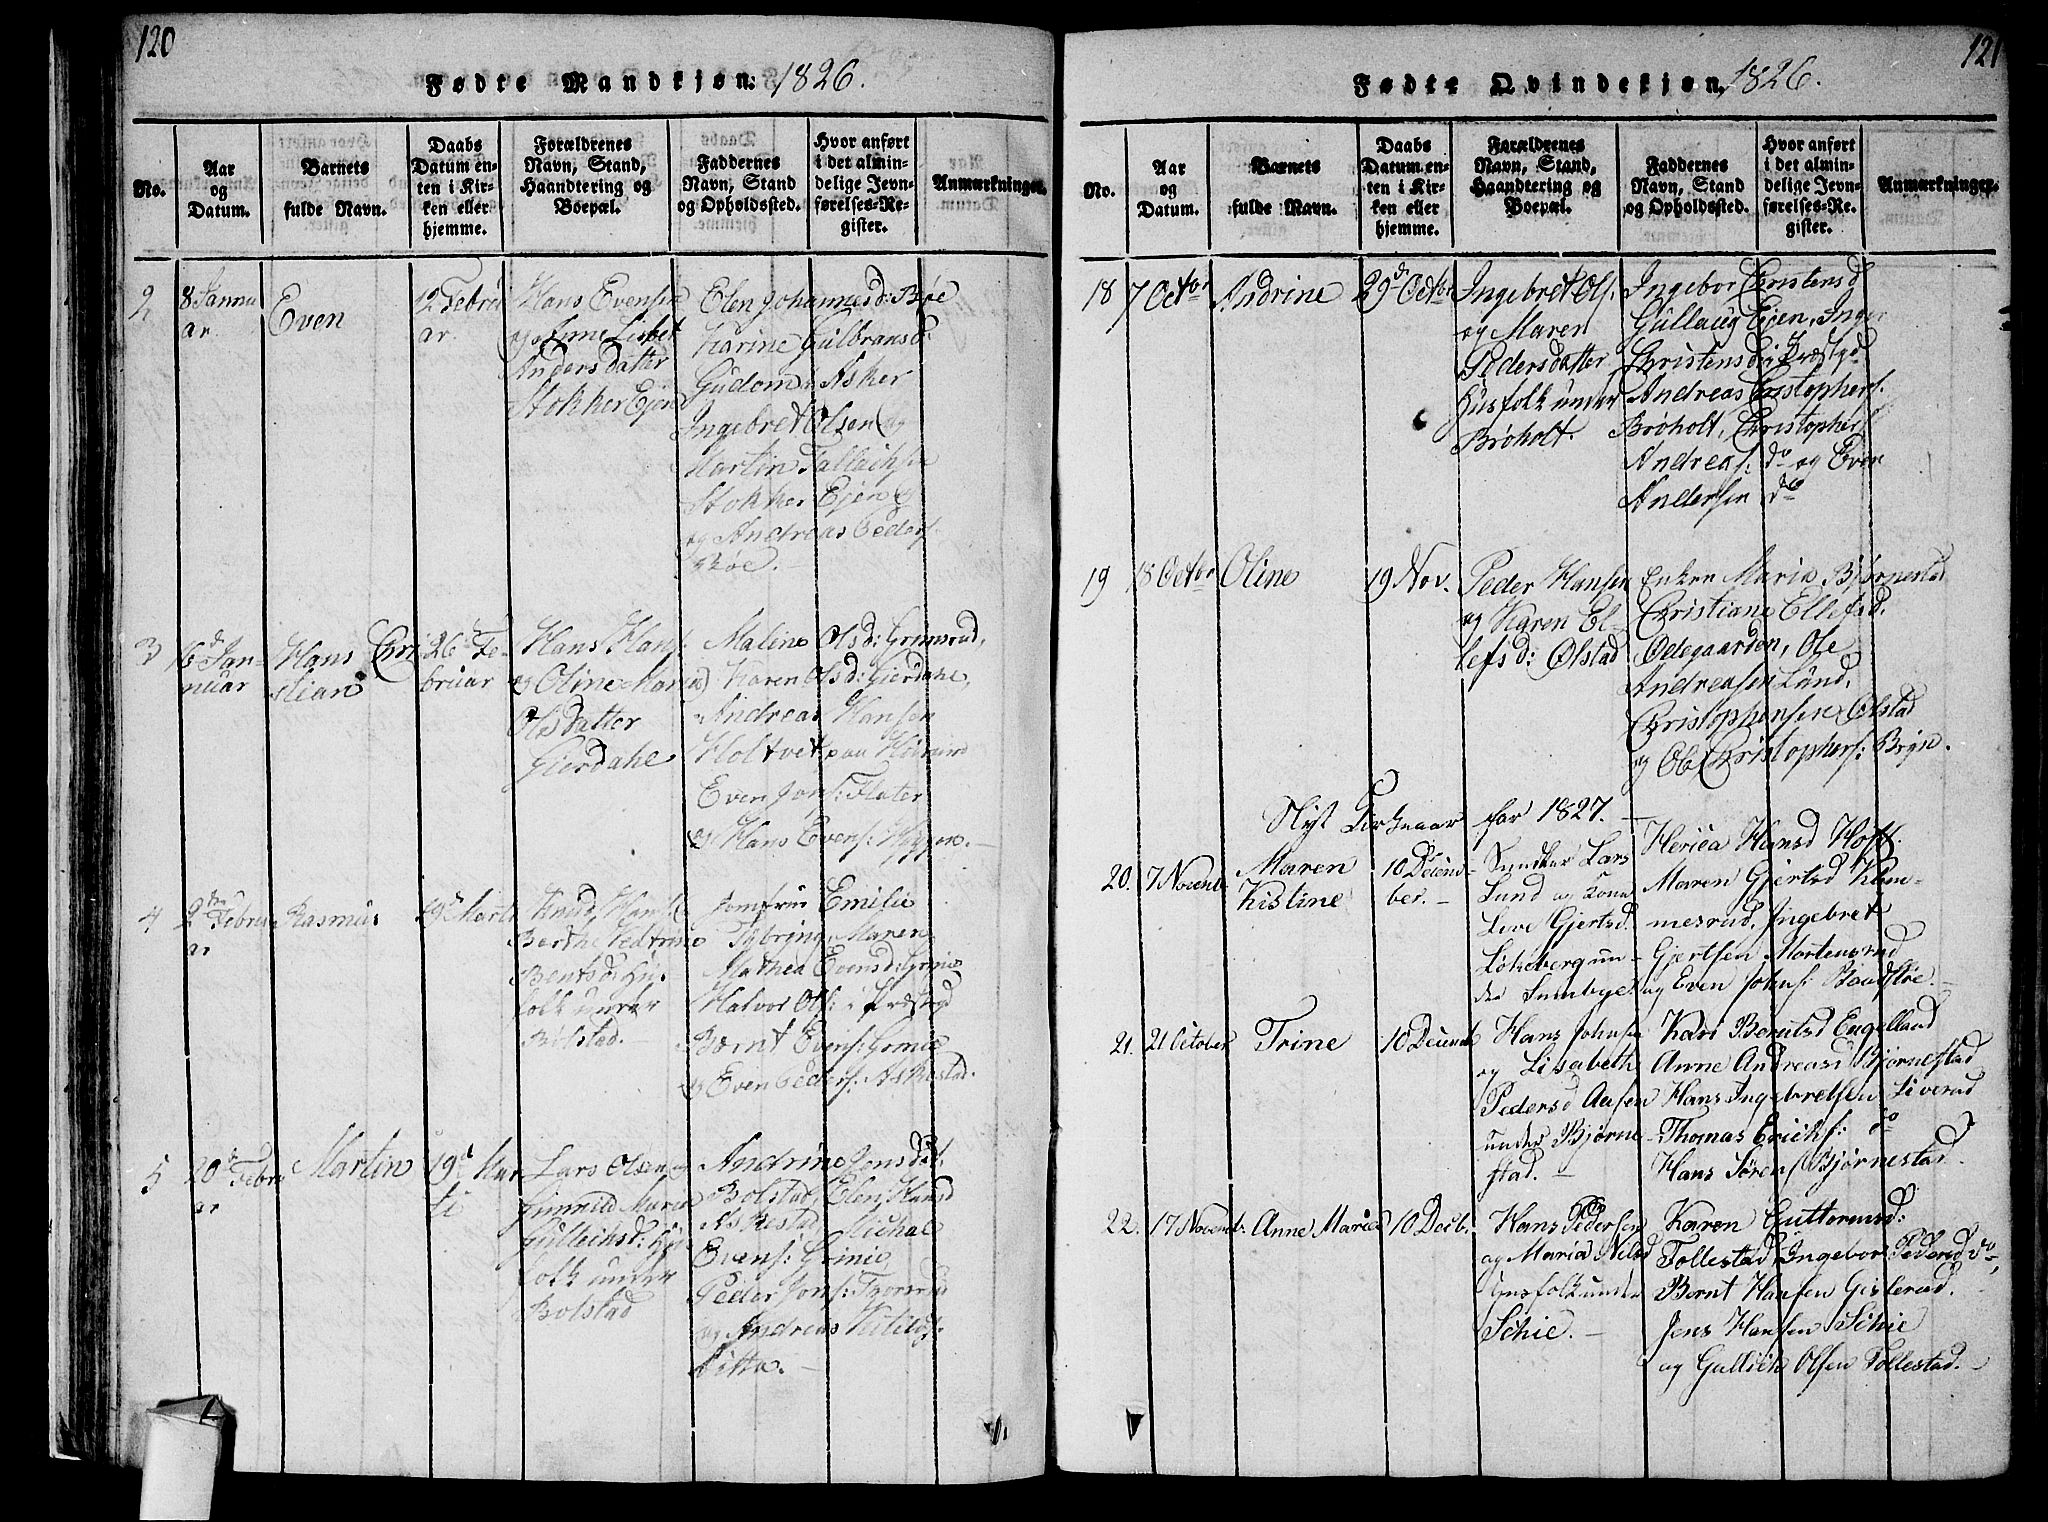 120
Fødte Mandkjøn: 1826.
No.
Aar og Datum.
Barnets fulde Navn.
Daabs Datum enten i Kirken eller hjemme.
Forældrenes Navn, Stand, Haandtering og Boepæl.
Faddernes Navn, Stand og Opholdssted.
Hvor anført i det almindelige Jevnførelses-Register.
Anmærkninger.
2
8 Janu
ar.
Even
12 Februa
ar.
Hans Evensen
og Anne Lisbet
Andersdatter
Stokker Ejen
Elen Johannesd: Bøe
Karine Gulbransd:
Gudom i Asker
Ingebret Olsen og
Martin Tallachsen
Stokker Ejen og
og Andreas Peders.
Bøe.
3
16d Jan-
nuar
Hans Chri
stian
26d Fe-
bruar
Hans Hans.
og Oline Maren
Olsdatter
Gierdahl
Maline Olsd: Grimsrud,
Karen Olsd: Gierdahl,
Andreas Hansen
Holtvet paa
Even Jons: Flater
og Hans Evens:
4
2den Februa
ar
Rasmus
19d Marti
Knud Hans:
Berthe
Bentsd: Hu-
folk under
Bolstad.
Jomfru Emilie
Tybring, Maren
Mathea Evensd: Grinie
Halvor Ols: i Præstgd
Bernt Evens: Grinie
og Even Peders: Askestad.
5
20d Febru
ar
Martin
19d Mar
ti
Lars Olsen og
Gunnild Marie
Gulleichsd: Hu
folk under
Bolstad
Andrine Jonsd:
Bolstad, Elen Hansd
Askestad, Michal
Evens: Grinie,
Peder Jons:
og Andreas
Ditto.
121
Fødte Qvindekjøn, 1826.
No.
Aar og Datum.
Barnets fulde Navn.
Daabs Datum enten i Kirken eller hjemme.
Forældrenes Navn, Stand, Haandtering og Boepæl.
Faddernes Navn, Stand og Opholdssted.
Hvor anført i det almindelige Jevnførelses-Register.
Anmærkninger.
18
7 Octbr
Andrine
29d Octbr
Ingebret Ols.
og Maren
Pedersdatter
Husfolk under
Brøholt.
Ingebor Christensd
Gullaug Ejen, Inger
Christensd: i Præstgd
Andreas Cristophers.
Brøholt, Christopher
Andreas: do og Even
Andersen do
19
18 Octbr
Oline
19 Nov.
Peder Hansen
og Karen El-
lefsd: Ølstad
Enken Maria Bjørnestad
Christiane Ellefsd.
Ødegaarden, Ole
Andreasen Lund,
Christophersen Ølstad
og Ole Christophers: Bryn.
Nyt Kirkeaar for 1827.
20.
7 Novemb.
Maren
Kistine
10 Decem-
ber.
Lars
Lund og Kone
Live Gjertsd.
Løkeberg un-
der Sumbye.
Hansd Hoff.
Maren Gjertsd Klem-
mesrud, Ingebret
Gjertsen Mortensrud
og Even Johns: Baadstøe.
21.
21 October
Trine
10 Decemb
Hans Johnsen
og Lisabeth
Pedersd Aasen
under Bjørne-
stad.
Kari Berntsd Engelland
Anne Andreasd Bjørnestad
Hans Ingebretsen Siverud
Thomas Erichs: do
Hans Sørens. Bjørnestad.
22.
17 Novemb.
Anne Maria
10 Decb.
Hans Pedersen
og Maria Nilsd
Husfolk under
Schie.
Karen Guttormsd:
Tollestad, Ingebor Pedersd do,
Bernt Hansen Gislerud.
Jens Hansen Schie
og Gullich Olsen Tollestad.